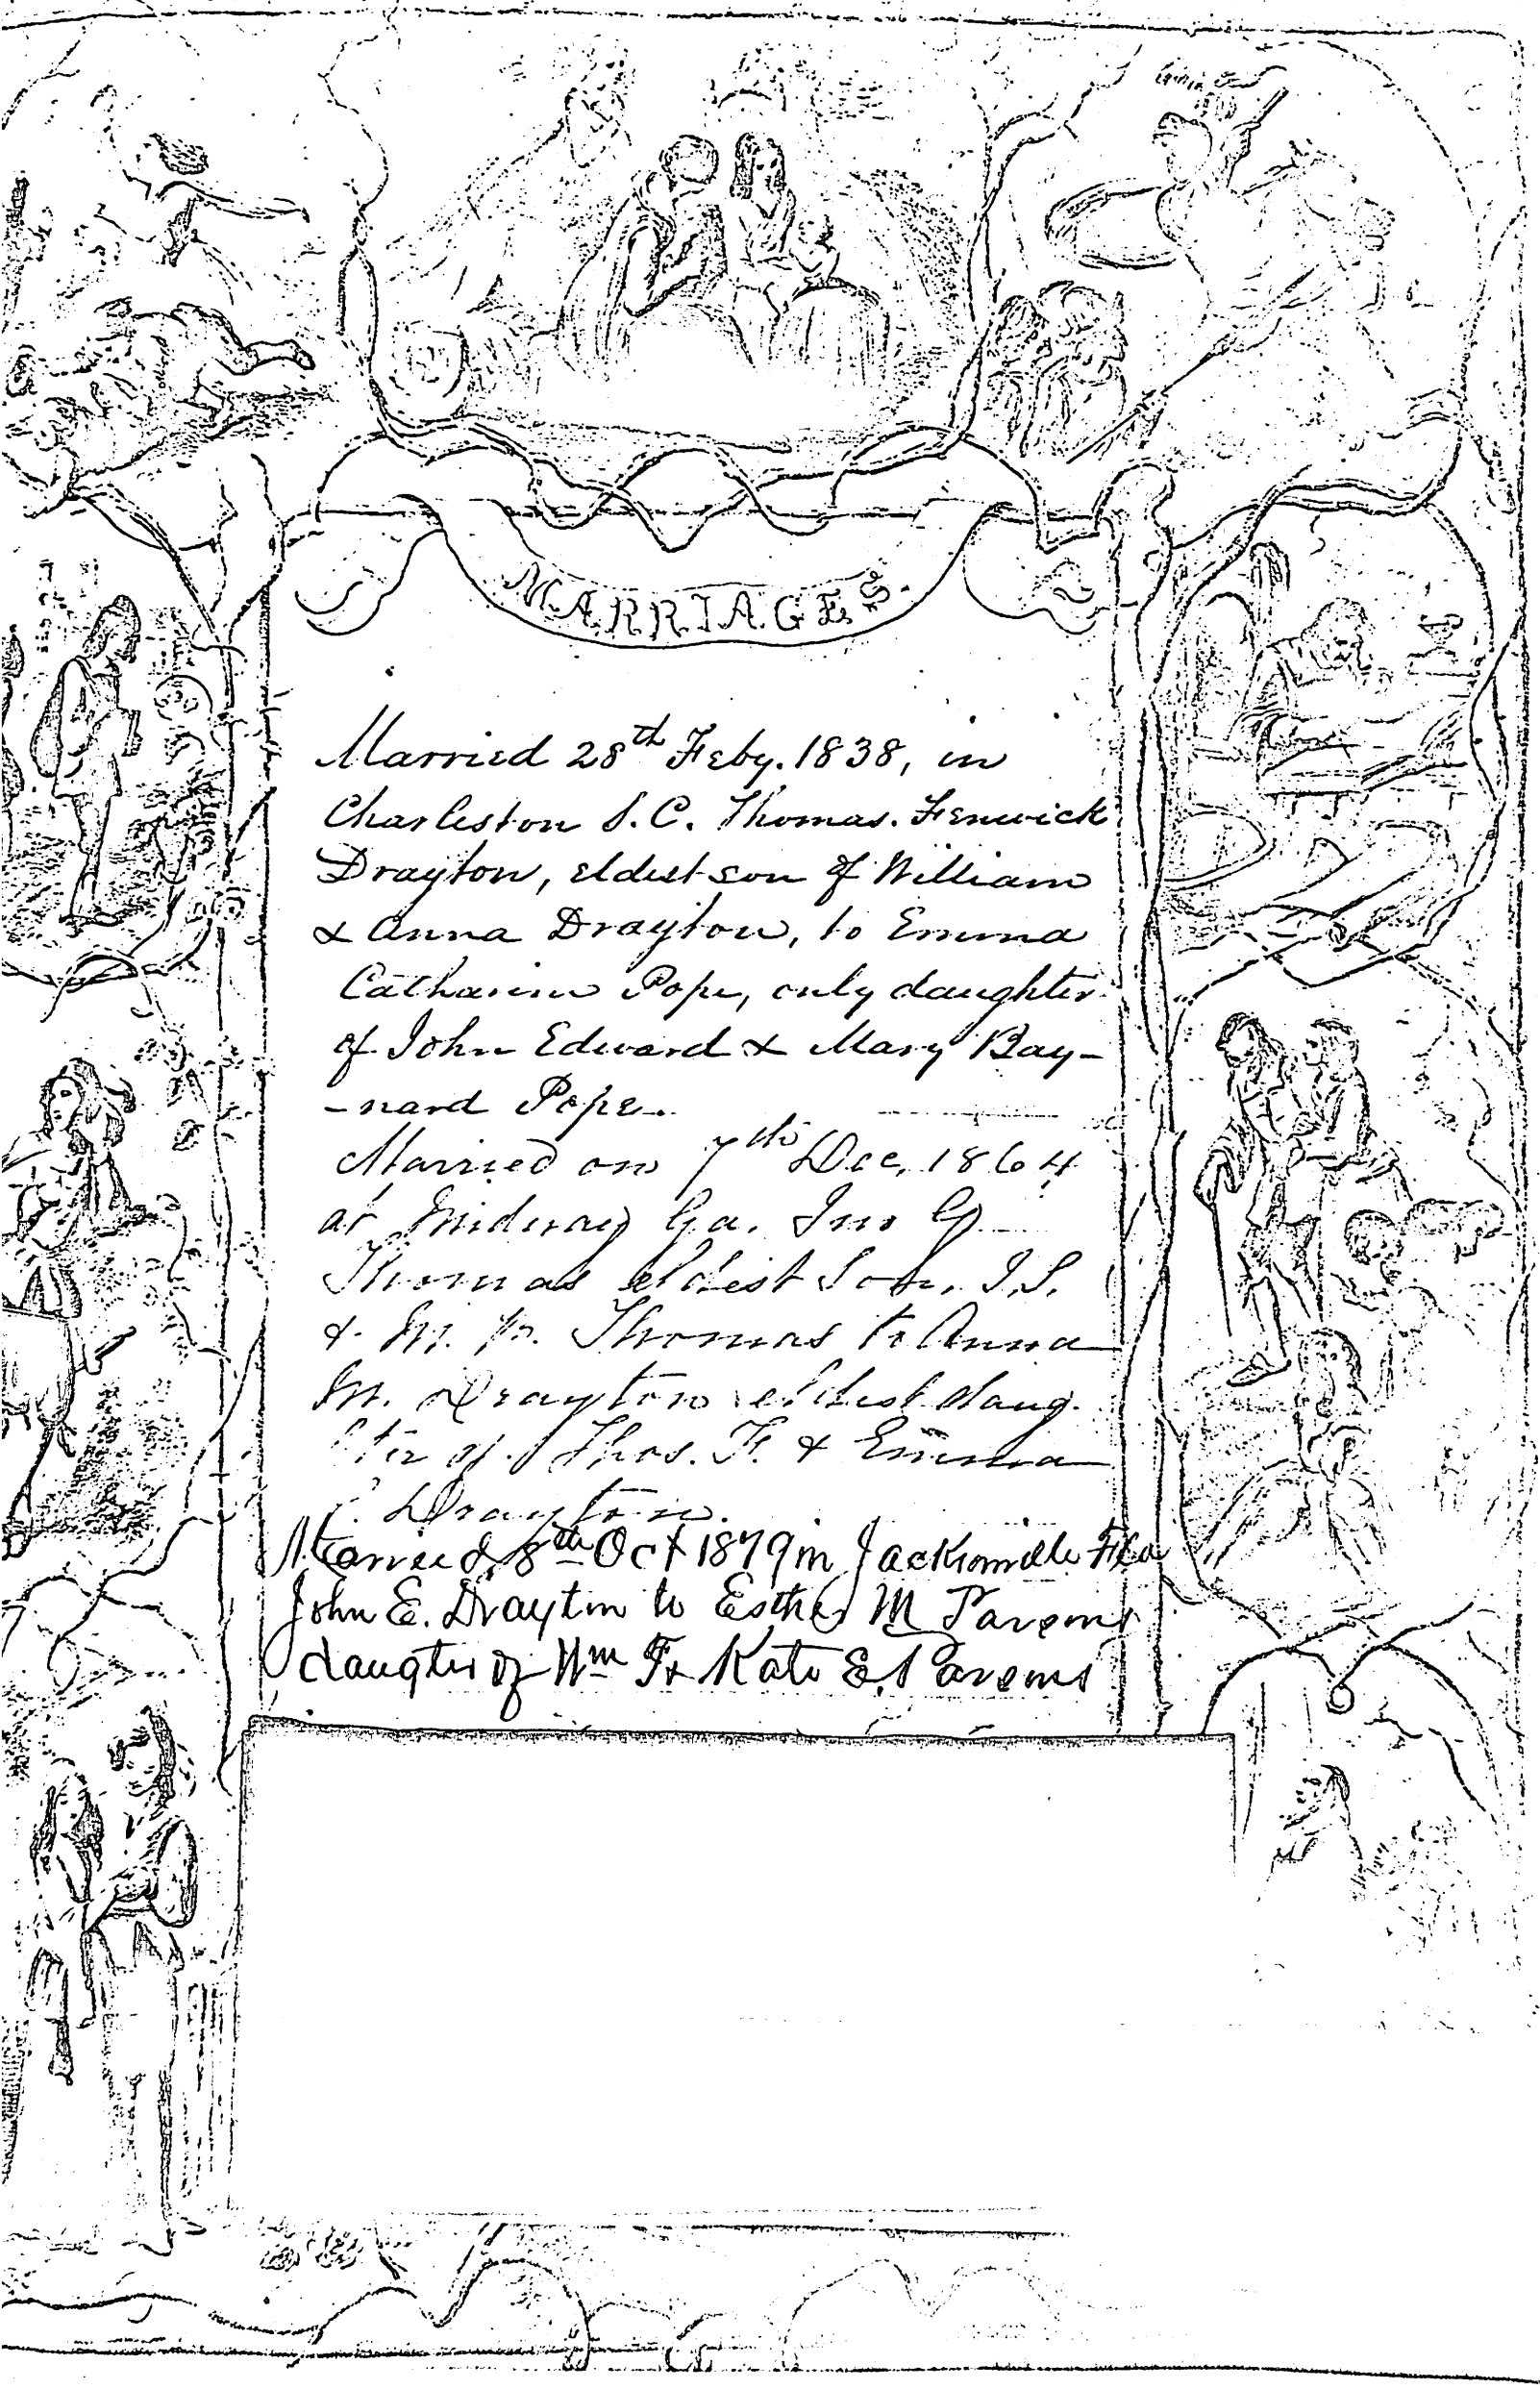 MARRIAGES.
Married 28th Feby. 1838, in
Charleston S. C. Thomas. Fenwick
Drayton, eldest son of William
& Anna Drayton, to Emma
Catharine Pope, only daughter
of John Edward & Mary Bay-
-nard Pope.
Married on 7th Dec, 1864
at Midway Ga. Jno G
Thomas eldest Son, J. S.
& M. Thomas to Anna
M. Drayton eldest daug.
ter of Thos. F. & Emma
C. Drayton.
Married 8th Oct 1879 in Jacksonville Fla
John E. Drayton to Esther M Parsons
daugter of Wm F & Kate E. Parsons